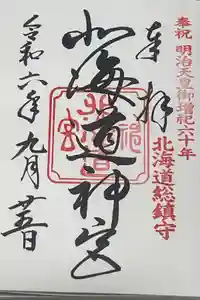 奉祝 明治天皇御増祀六十年
北海道総鎮守
奉拝
北海道神宮
令和六年九月廿五日